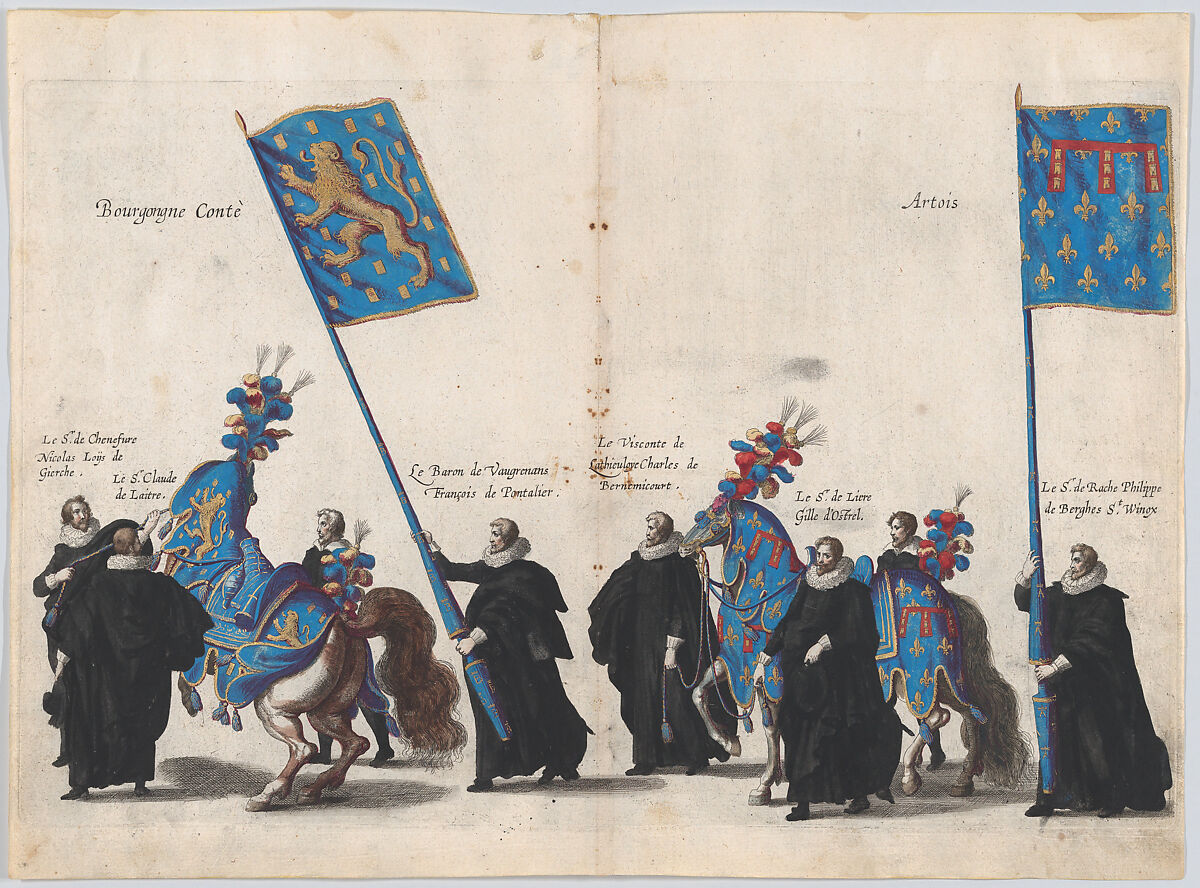 Bourgongne Contè
Artois
Le Sr. de Chenefure
Nicolas Loijs de
Gierche.
Le Sr. Claude
de Laitre.
Le Baron de Vaugrenans
François de Pontalier.
Le Visconte de
Lathieuloye Charles de
Bernemicourt.
Le Sr. de Liere
Gille d'Ostrel.
Le Sr. de Rache Philippe
de Berghes St. Winox